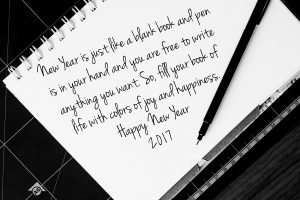 New Year is just like a blank book and pen
is in your hand and you are free to write
anything you want. So, fill your book of
life with colors of joy and happiness.
Happy New Year
2017